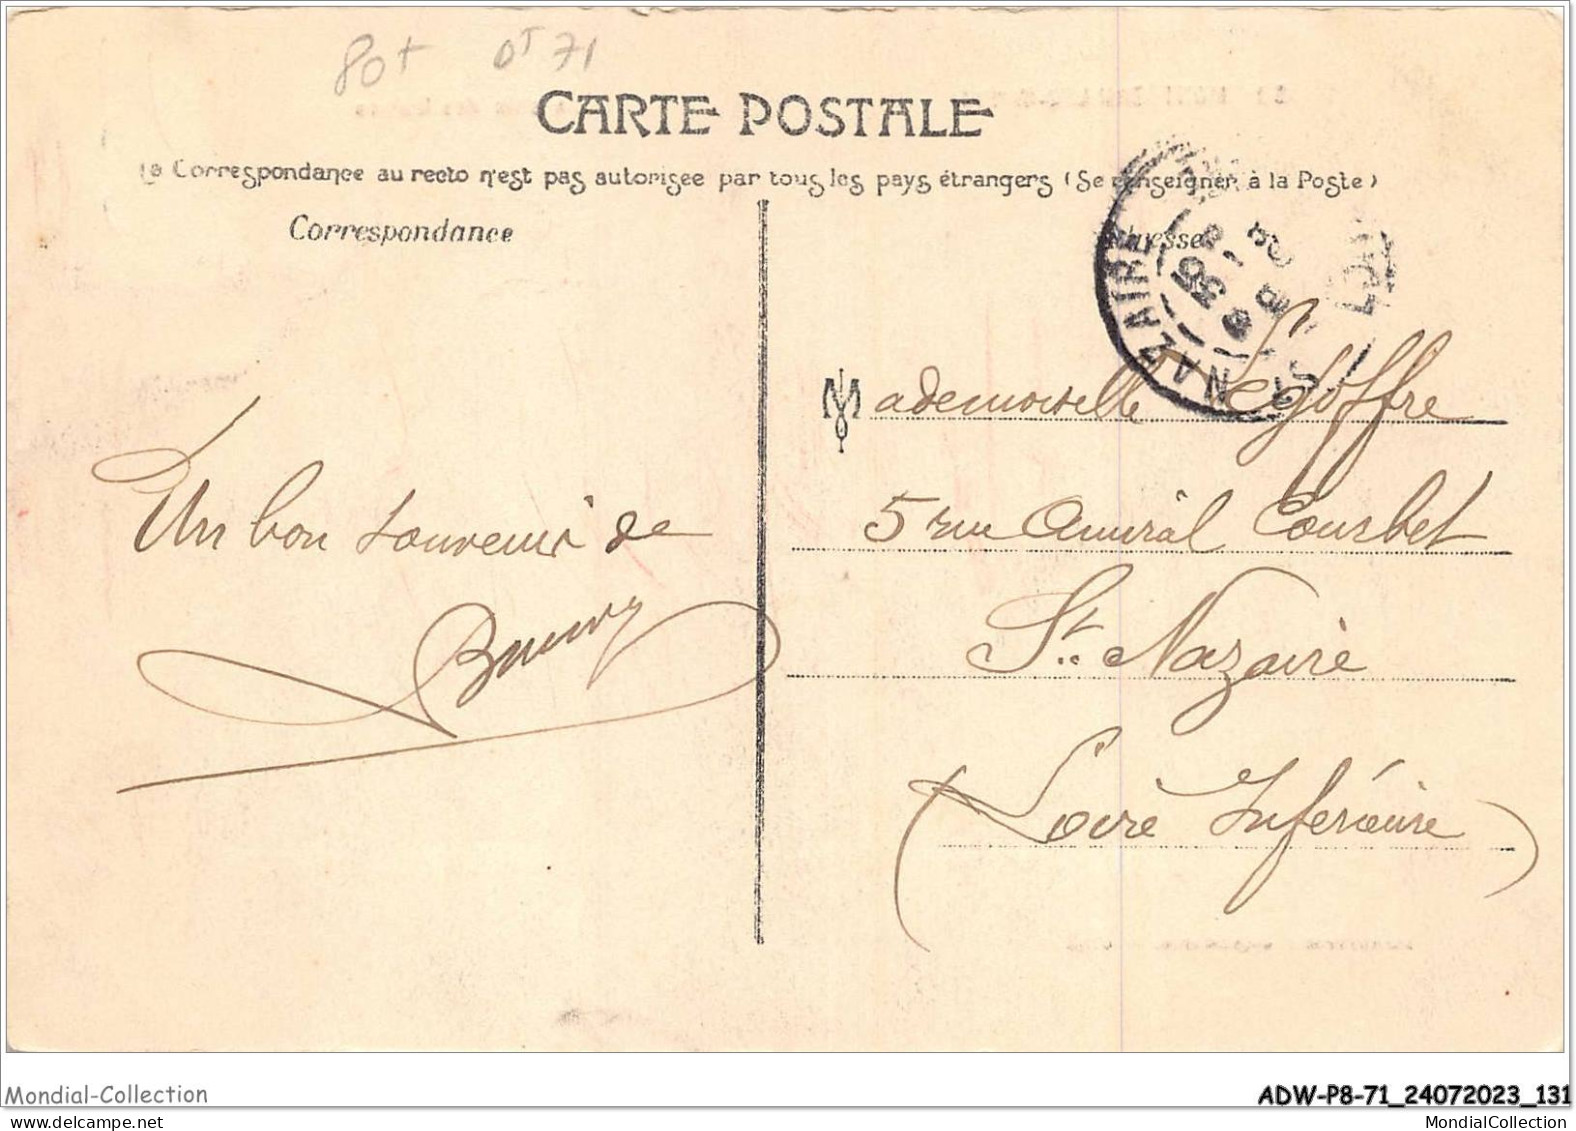 80+ 0T 71
CARTE POSTALE
La Correspondance au recto n'est pas autorisée par tous les pays étrangers (Se renseigner à la Poste)
Correspondance
Adresse
NAZAIRE
Mademoiselle Legoffre
5 rue Amiral Courbet
St. Nazaire
(Loire Inférieure)
Un bon souvenir de
Mondial-Collection
ADW-P8-71_24072023_131
MondialCollection